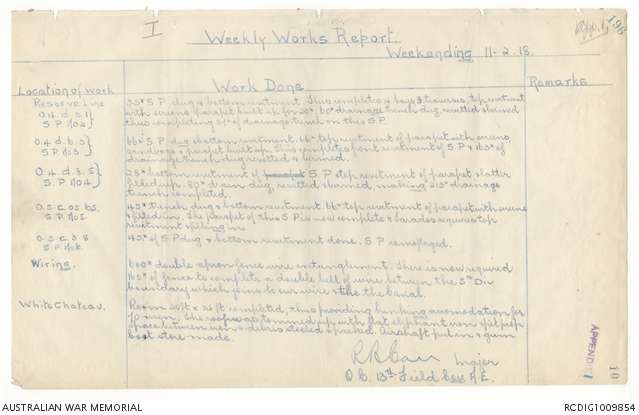 I
App. 6
196
Weekly Works Report.
Weekending 11-2-18.
Location of Work
Work Done
Remarks
Reserve Line
35ˣ S.P. dug & bottom revetment. This completes bays & traverses, top revetment
O.4.d.5.1
with screens parapet built up for 20ˣ. 60ˣ drainage trench dug, revetted & berned
S.P. No 4
thus completing of drainage trench on this S.P.
O.4.b.3
66ˣ S.P. dug & bottom revetment. 66ˣ top revetment of parapet with screens,
S.P. No 3
sandbags & parapet built up. This completes front revetment of S.P. & 163ˣ of
drainage trench dug revetted & berned.
O.4.d.3.5
25ˣ bottom revetment of S.P. step revetment of parapet & latter
S.P. No 4
filled up. 80ˣ drain dug, revetted & berned, making 213ˣ drainage
trench completed.
45ˣ trench dug & bottom revetment. 66ˣ top revetment of parapet with screens
& filled in. The parapet of this S.P. is now complete & parados requires top
revetment & filling in.
O.5.c.3.8
45ˣ of S.P. dug & bottom revetment done. S.P. camouflaged.
Wiring.
600ˣ double apron fence wire entanglement. There is now required
160ˣ of fence to complete a double belt of wire between the 5th Div
boundary which joins to our wire & the canal.
White Chateau.
Room 20ft x 26ft completed, thus providing bunking accomodation for
70 men. The roof was strutted up with flat elephant iron & pit props
space between iron & debris & packed. Air shaft put in & gum
boot store made.
Major
O.C. 13th Field Coy A.E.
APPENDIX
10
AUSTRALIAN WAR MEMORIAL
RCDIG1009854